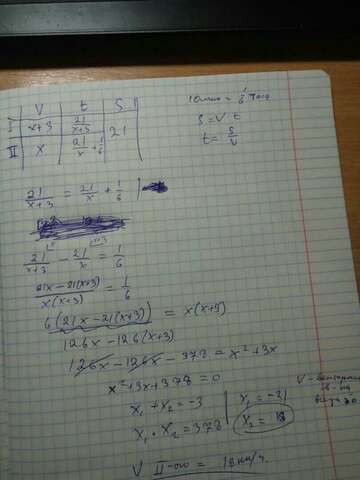 V t S
I x+3 21/(x+3) 21
II x 21/x + 1/6
10 мин = 1/6 часа
S = V t
t = S/V
21/(x+3) = 21/x + 1/6
21/(x+3) - 21/x = 1/6
(21x-21(x+3))/(x(x+3)) = 1/6
6(21x-21(x+3)) = x(x+3)
126x-126(x+3)
126x-126x-378 = x²+3x
x²+3x+378=0
x₁+x₂=-3
x₁·x₂=378
x₁=-21
x₂=18
V II-ого = 18км/ч.